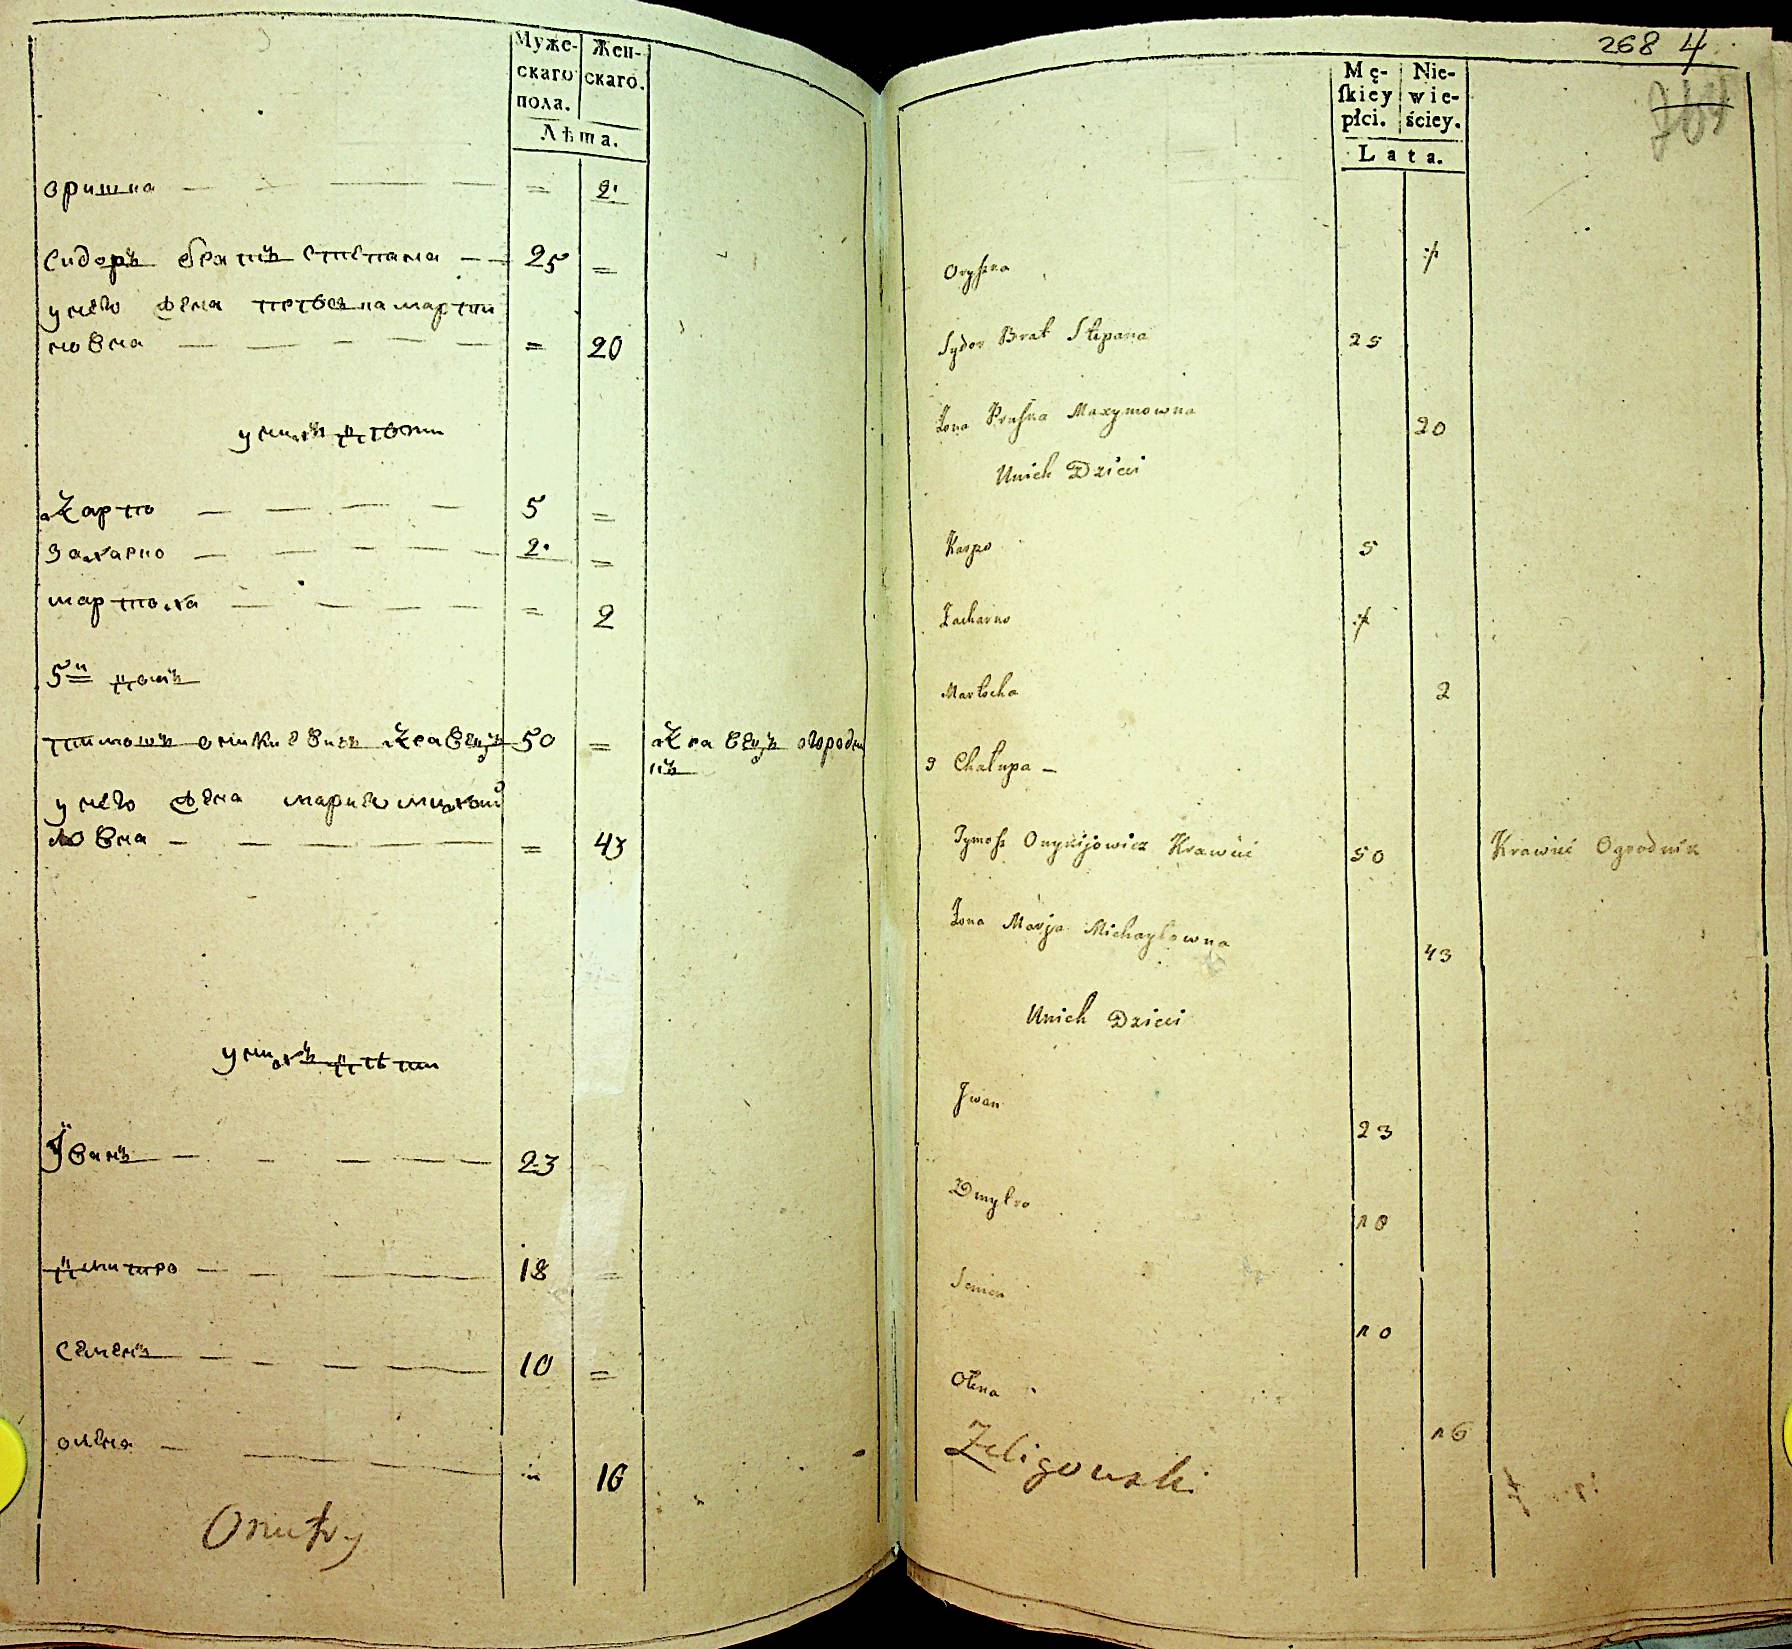 Муже-
скаго
пола.
Жен-
скаго.
Лѣта.
оришка — — — — = 2
Сидоръ братъ степана — — 25 =
у него жена
новна — — — — — = 20
у нихъ дѣти
Карпо — — — — 5 =
Захарко — — — — 2 =
мартоха — — — — = 2
5й домъ
тимошъ оникиевичъ Кравецъ 50 = Кравецъ огородни
къ
у него жена мария михай
ловна — — — = 43
у нихъ дѣти
Іванъ — — — — 23
дмитро — — — 18 =
Семенъ — — — — 10 =
олена — — = 16
268 4
Mę-
ſkiey
płci.
Nie-
wie-
ściey.
Lata.
Oryszka
Sydor Brat Stepana 25
Żona Maxymowna 20
Unich Dzieci
Karpo 5
Zacharko
Martocha 2
Chałupa —
Tymosz Onykijowicz Krawieć 50 Krawieć Ogrodnik
Żona Marja Michayłowna 43
Unich Dzieci
Jwan 23
Dmytro 18
Semen 10
Ołena 16
Zeligowski